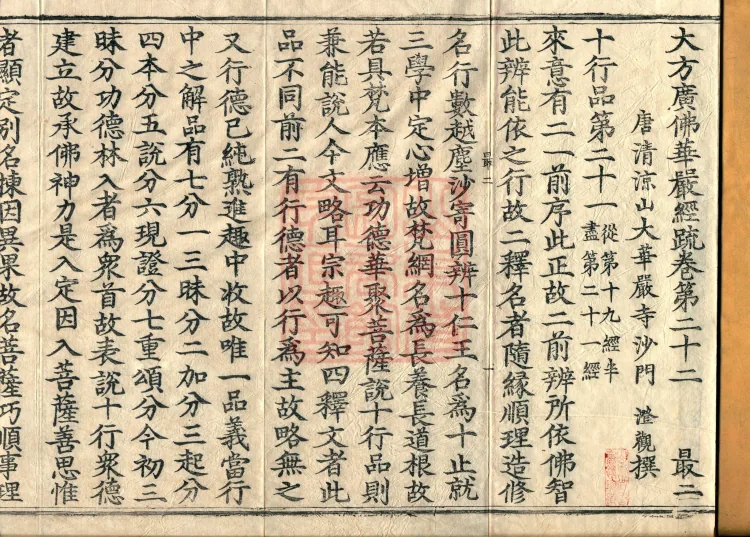 大方廣佛華嚴經疏卷第二十二 最二
唐清涼山大華嚴寺沙門 澄觀 撰
十行品第二十一 從第十九經半
盡第二十一經
來意有二一前序此正故二前辨所依佛智
此辨能依之行故二釋名者隨緣順理造修
名行數越塵沙寄圓辨十仁王名為十止就
三學中定心增故梵網名為長養長道根故
若具梵本應云功德華聚菩薩說十行品則
兼能說人今文略耳宗趣可知四釋文者此
品不同前二有行德者以行為主故略無之
又行德已純熟進趣中收故唯一品義當行
中之解品有七分一三昧分二加分三起分
四本分五說分六現證分七重頌分今初三
昧分功德林入者為衆首故表說十行衆德
建立故承佛神力是入定因入菩薩善思惟
者顯定別名揀因異果故名菩薩巧順事理
最二